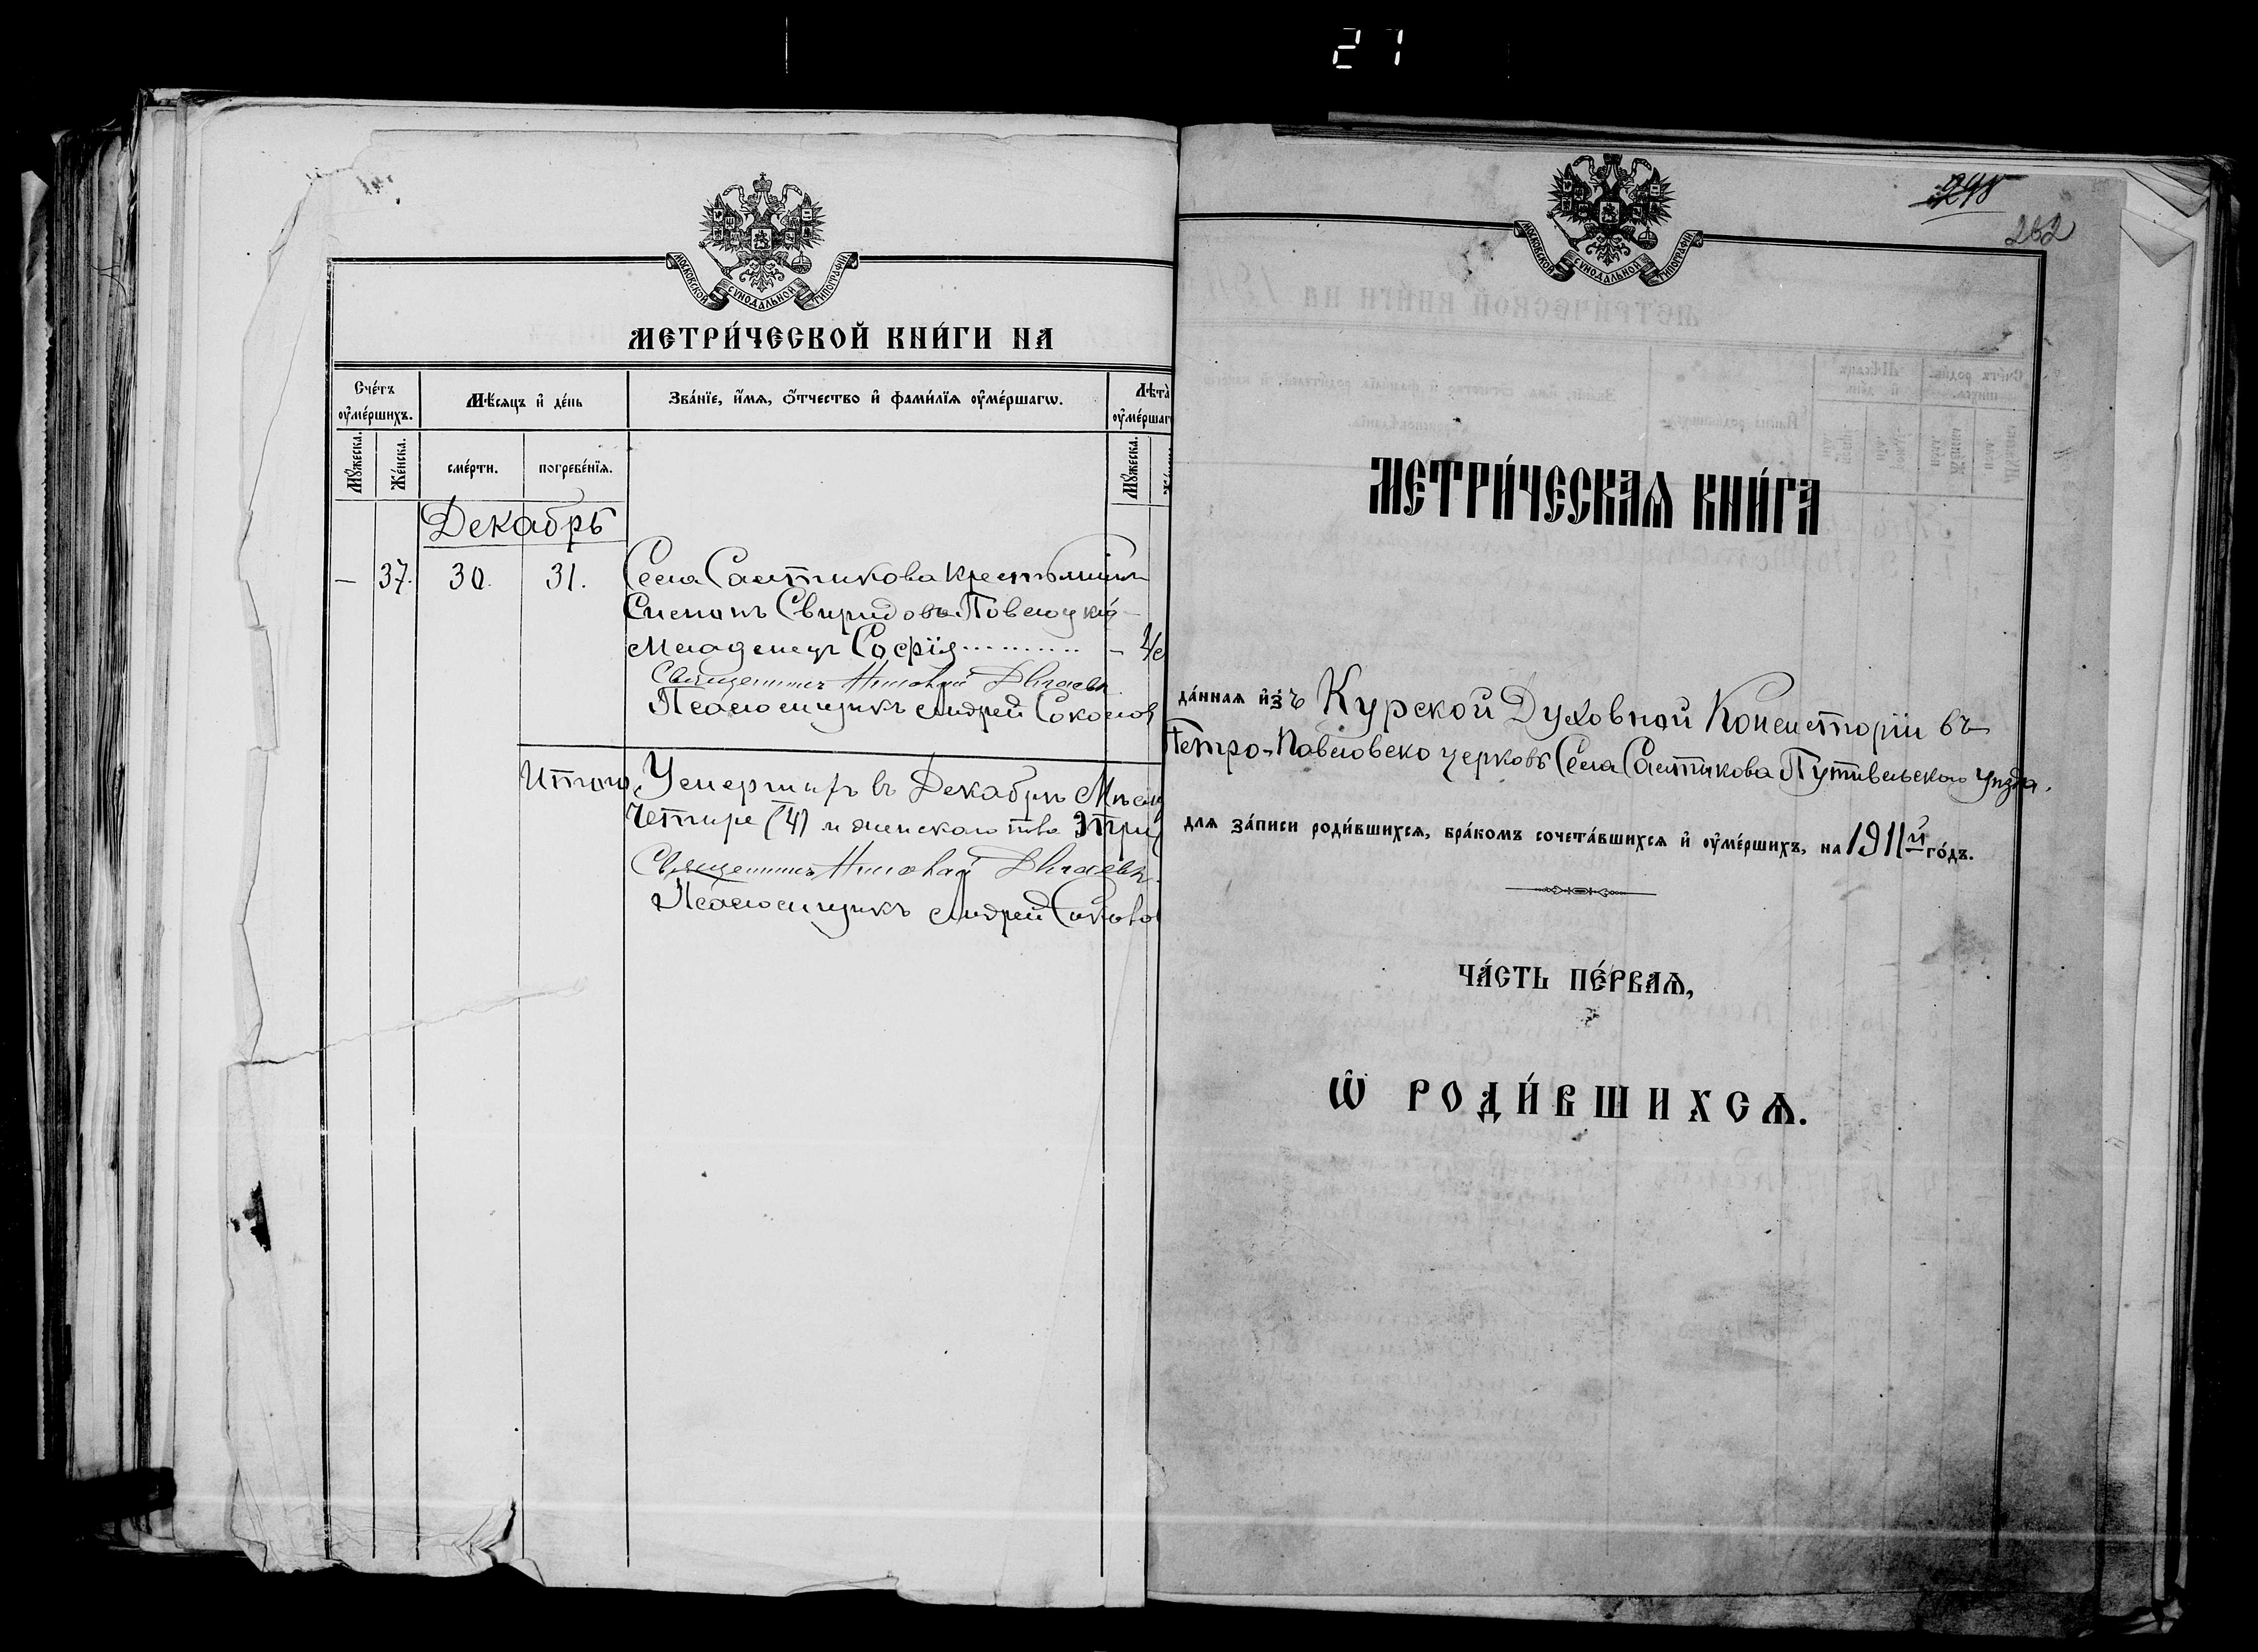 27
МОСКОВСКОЙ СѴНОДАЛЬНОЙ ТИПОГРАФІИ
МЕТРИ́ЧЕСКОЙ КНИ́ГИ НА
Сче́тъ оу҆ме́ршихъ.
Мѣ́сяцъ и҆ де́нь
Зва́нїе, и҆́мѧ, ѻ҆́тчество и҆ фами́лїѧ оу҆ме́ршагѡ.
Лѣ́та̀ оу҆ме́ршаг
Мꙋ́жеска.
Же́нска.
сме́рти.
погребе́нїѧ.
Мꙋ́жеска.
Декабрь
— 37. 30. 31. Села Салтикова крестьянина
Степана Свиридова
Младенец София
Священник Николай
Псаломщикъ Андрей Соколов
Итого Умерших въ Декабрѣ
Четыре (4) и женскаго пола 3 три
Священникъ Николай
Псаломщикъ Андрей
МОСКОВСКОЙ СѴНОДАЛЬНОЙ ТИПОГРАФІИ
298
262
МЕТРИ́ЧЕСКАѦ КНИ́ГА
да́нная и҆зъ Курской Духовной Консисторіи въ
Петро-Павловско церковь Села Салтикова Путивльскаго уѣзда.
для за́писи роди́вшихсѧ, бра́комъ сочета́вшихсѧ и҆ оу҆ме́ршихъ, на 1911й го́дъ.
ЧА́СТЬ ПЕ́РВАѦ,
Ѡ҆ РОДИ́ВШИХСѦ.